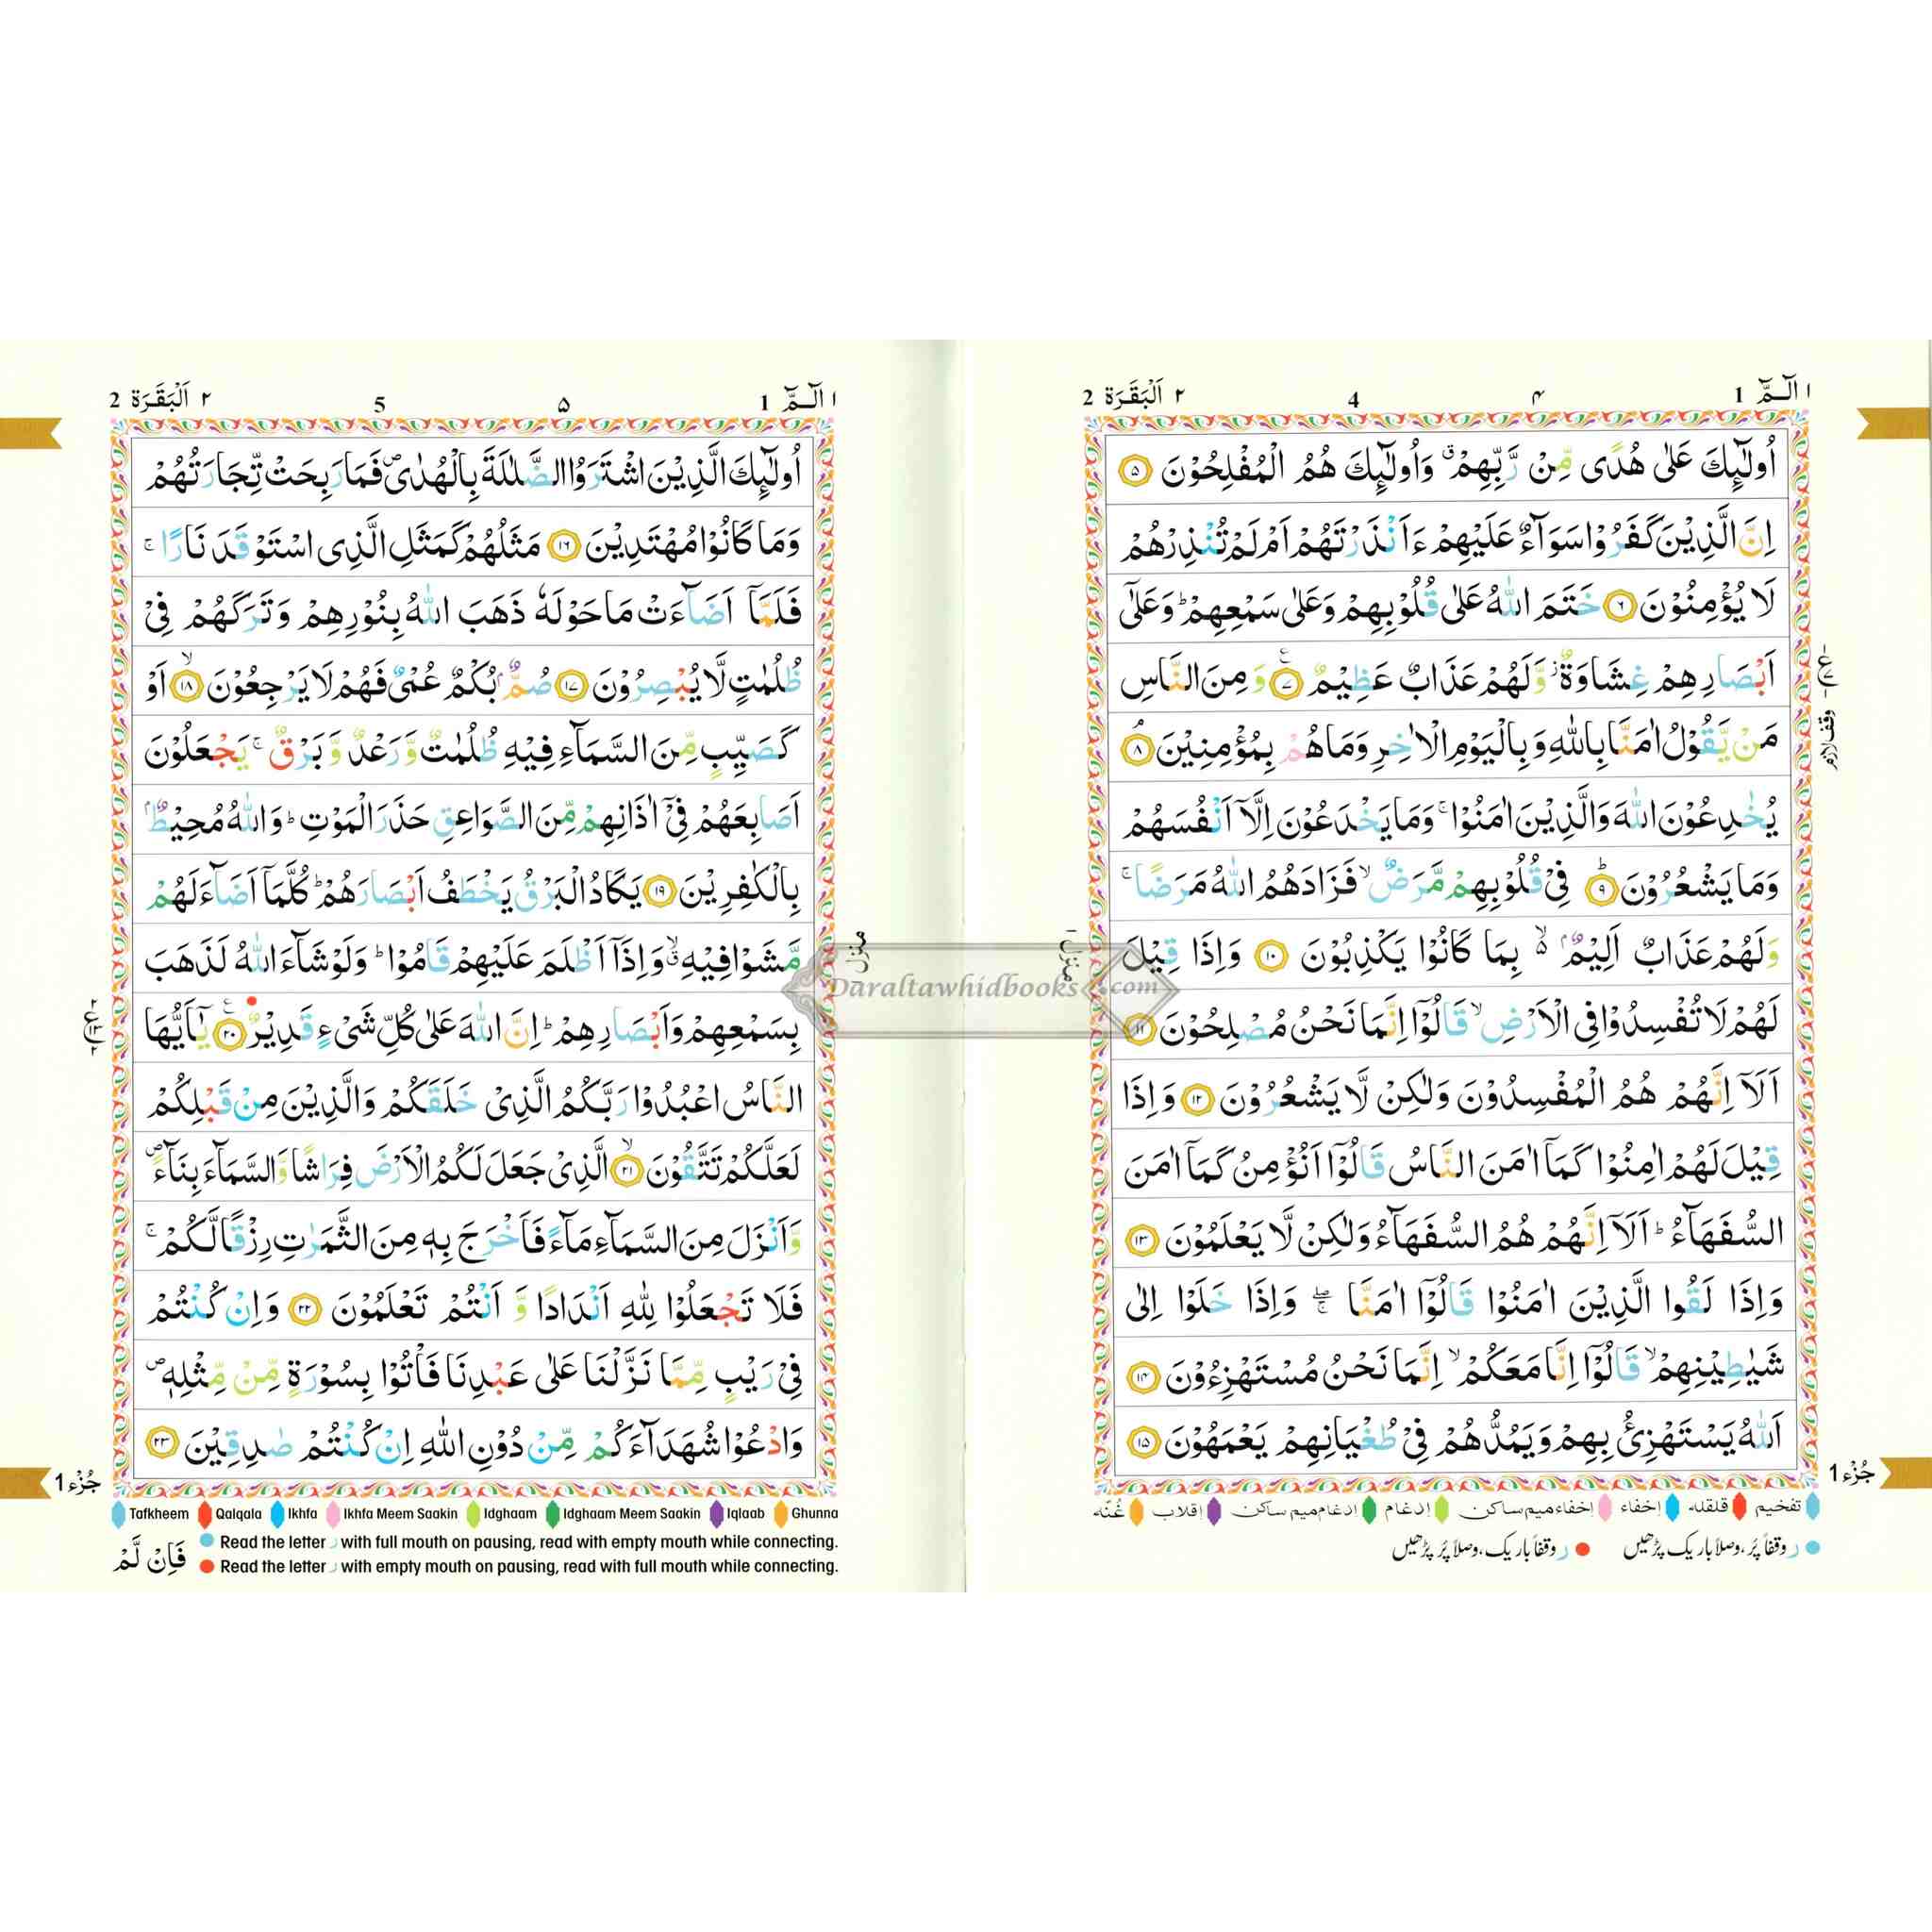 ١ الٓـمّٓ 1
۴
4
٢ اَلْبَقَرَة 2
اُولٰٓئِكَ عَلٰى هُدًى مِّنْ رَّبِّهِمْ ۗ وَاُولٰٓئِكَ هُمُ الْمُفْلِحُوْنَ ۵
اِنَّ الَّذِيْنَ كَفَرُوْا سَوَآءٌ عَلَيْهِمْ ءَاَنْذَرْتَهُمْ اَمْ لَمْ تُنْذِرْهُمْ
لَا يُؤْمِنُوْنَ ۶ خَتَمَ اللّٰهُ عَلٰى قُلُوْبِهِمْ وَعَلٰى سَمْعِهِمْ ؕ وَعَلٰٓى
اَبْصَارِهِمْ غِشَاوَةٌ ؗ وَّلَهُمْ عَذَابٌ عَظِيْمٌ ۷ وَمِنَ النَّاسِ
مَنْ يَّقُوْلُ اٰمَنَّا بِاللّٰهِ وَبِالْيَوْمِ الْاٰخِرِ وَمَا هُمْ بِمُؤْمِنِيْنَ ۸
يُخٰدِعُوْنَ اللّٰهَ وَالَّذِيْنَ اٰمَنُوْا ۚ وَمَا يَخْدَعُوْنَ اِلَّآ اَنْفُسَهُمْ
وَمَا يَشْعُرُوْنَ ؕ ۹ فِيْ قُلُوْبِهِمْ مَّرَضٌ ۙ فَزَادَهُمُ اللّٰهُ مَرَضًا ۚ
وَلَهُمْ عَذَابٌ اَلِيْمٌ ۢ ۙ بِمَا كَانُوْا يَكْذِبُوْنَ ۱۰ وَاِذَا قِيْلَ
لَهُمْ لَا تُفْسِدُوْا فِى الْاَرْضِ ۙ قَالُوْٓا اِنَّمَا نَحْنُ مُصْلِحُوْنَ ۱۱
اَلَآ اِنَّهُمْ هُمُ الْمُفْسِدُوْنَ وَلٰكِنْ لَّا يَشْعُرُوْنَ ۱۲ وَاِذَا
قِيْلَ لَهُمْ اٰمِنُوْا كَمَآ اٰمَنَ النَّاسُ قَالُوْٓا اَنُؤْمِنُ كَمَآ اٰمَنَ
السُّفَهَآءُ ؕ اَلَآ اِنَّهُمْ هُمُ السُّفَهَآءُ وَلٰكِنْ لَّا يَعْلَمُوْنَ ۱۳
وَاِذَا لَقُوا الَّذِيْنَ اٰمَنُوْا قَالُوْٓا اٰمَنَّا ۖ ۚ وَاِذَا خَلَوْا اِلٰى
شَيٰطِيْنِهِمْ ۙ قَالُوْٓا اِنَّا مَعَكُمْ ۙ اِنَّمَا نَحْنُ مُسْتَهْزِءُوْنَ ۱۴
اَللّٰهُ يَسْتَهْزِئُ بِهِمْ وَيَمُدُّهُمْ فِيْ طُغْيَانِهِمْ يَعْمَهُوْنَ ۱۵
وقف لازم
منزل ١
جُزْء 1
تفخیم قلقله إخفاء إخفاء میم ساكن إدغام إدغام میم ساكن إقلاب غُنّه
ر وقفاً پُر، وصلاً باریک پڑھیں ر وقفاً باریک، وصلاً پُر پڑھیں
١ الٓـمّٓ 1
۵
5
٢ اَلْبَقَرَة 2
اُولٰٓئِكَ الَّذِيْنَ اشْتَرَوُا الضَّلٰلَةَ بِالْهُدٰى ۪ فَمَا رَبِحَتْ تِّجَارَتُهُمْ
وَمَا كَانُوْا مُهْتَدِيْنَ ۱۶ مَثَلُهُمْ كَمَثَلِ الَّذِى اسْتَوْقَدَ نَارًا ۚ
فَلَمَّآ اَضَآءَتْ مَا حَوْلَهٗ ذَهَبَ اللّٰهُ بِنُوْرِهِمْ وَتَرَكَهُمْ فِيْ
ظُلُمٰتٍ لَّا يُبْصِرُوْنَ ۱۷ صُمٌّ ۢ بُكْمٌ عُمْىٌ فَهُمْ لَا يَرْجِعُوْنَ ۙ ۱۸ اَوْ
كَصَيِّبٍ مِّنَ السَّمَآءِ فِيْهِ ظُلُمٰتٌ وَّرَعْدٌ وَّبَرْقٌ ۚ يَجْعَلُوْنَ
اَصَابِعَهُمْ فِيْٓ اٰذَانِهِمْ مِّنَ الصَّوَاعِقِ حَذَرَ الْمَوْتِ ؕ وَاللّٰهُ مُحِيْطٌ ۢ
بِالْكٰفِرِيْنَ ۱۹ يَكَادُ الْبَرْقُ يَخْطَفُ اَبْصَارَهُمْ ؕ كُلَّمَآ اَضَآءَ لَهُمْ
مَّشَوْا فِيْهِ ۙ وَاِذَآ اَظْلَمَ عَلَيْهِمْ قَامُوْا ؕ وَلَوْ شَآءَ اللّٰهُ لَذَهَبَ
بِسَمْعِهِمْ وَاَبْصَارِهِمْ ؕ اِنَّ اللّٰهَ عَلٰى كُلِّ شَىْءٍ قَدِيْرٌ ۲۰ يٰٓاَيُّهَا
النَّاسُ اعْبُدُوْا رَبَّكُمُ الَّذِيْ خَلَقَكُمْ وَالَّذِيْنَ مِنْ قَبْلِكُمْ
لَعَلَّكُمْ تَتَّقُوْنَ ۙ ۲۱ الَّذِيْ جَعَلَ لَكُمُ الْاَرْضَ فِرَاشًا وَّالسَّمَآءَ بِنَآءً ۪
وَّاَنْزَلَ مِنَ السَّمَآءِ مَآءً فَاَخْرَجَ بِهٖ مِنَ الثَّمَرٰتِ رِزْقًا لَّكُمْ ۚ
فَلَا تَجْعَلُوْا لِلّٰهِ اَنْدَادًا وَّاَنْتُمْ تَعْلَمُوْنَ ۲۲ وَاِنْ كُنْتُمْ
فِيْ رَيْبٍ مِّمَّا نَزَّلْنَا عَلٰى عَبْدِنَا فَاْتُوْا بِسُوْرَةٍ مِّنْ مِّثْلِهٖ ۪
وَادْعُوْا شُهَدَآءَكُمْ مِّنْ دُوْنِ اللّٰهِ اِنْ كُنْتُمْ صٰدِقِيْنَ ۲۳
منزل
جُزْء 1
Tafkheem Qalqala Ikhfa Ikhfa Meem Saakin Idghaam Idghaam Meem Saakin Iqlaab Ghunna
Read the letter ر with full mouth on pausing, read with empty mouth while connecting.
Read the letter ر with empty mouth on pausing, read with full mouth while connecting.
فَاِنْ لَّمْ
Daraltawhidbooks.com